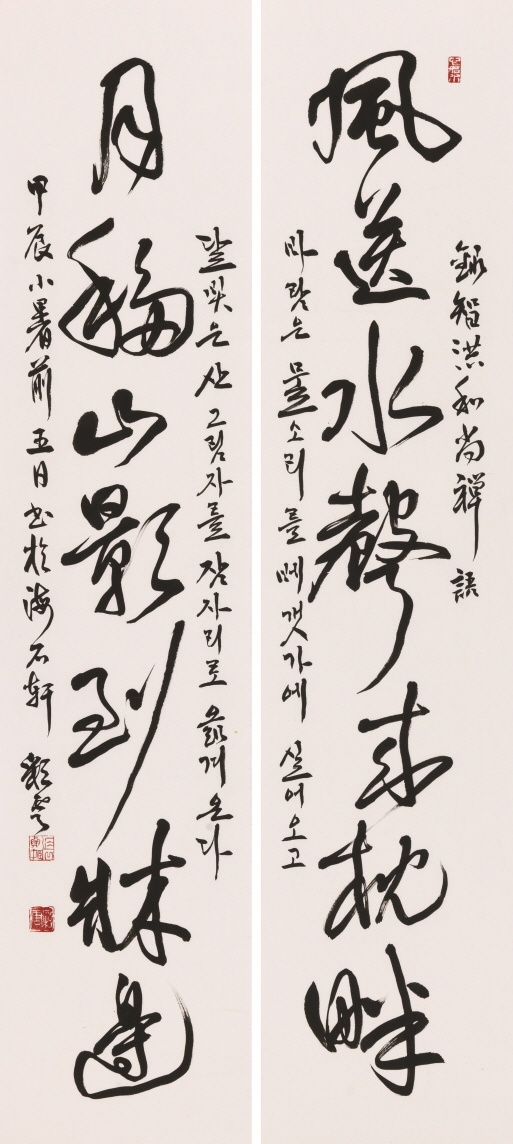 錄智洪和尚禪語
風送水聲來枕畔
바람은 물소리를 베갯가에 실어오고
달빛은 산 그림자를 잠자리로 옮겨 온다
月移山影到牀邊
甲辰小暑前五日書於海石軒